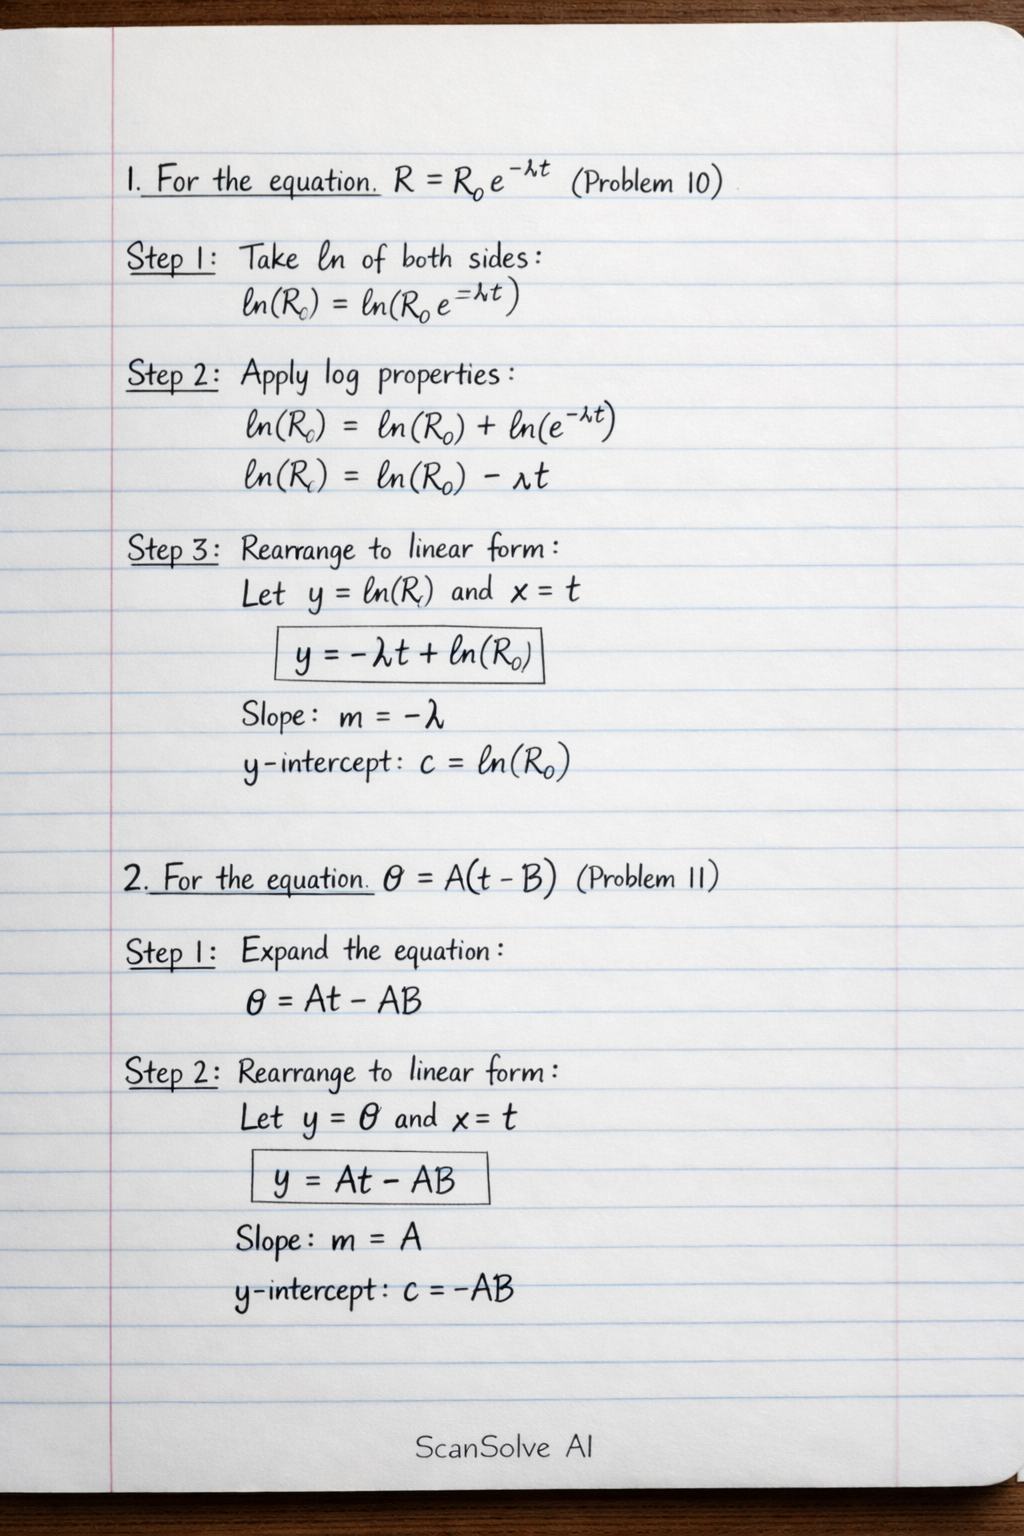 1. For the equation. R = R₀ e^(-λt) (Problem 10)
Step 1: Take ln of both sides:
ln(R₀) = ln(R₀ e^(=λt))
Step 2: Apply log properties:
ln(R₀) = ln(R₀) + ln(e^(-λt))
ln(R) = ln(R₀) - λt
Step 3: Rearrange to linear form:
Let y = ln(R) and x = t
y = -λt + ln(R₀)
Slope: m = -λ
y-intercept: c = ln(R₀)
2. For the equation. θ = A(t - B) (Problem 11)
Step 1: Expand the equation:
θ = At - AB
Step 2: Rearrange to linear form:
Let y = θ and x = t
y = At - AB
Slope: m = A
y-intercept: c = -AB
ScanSolve AI